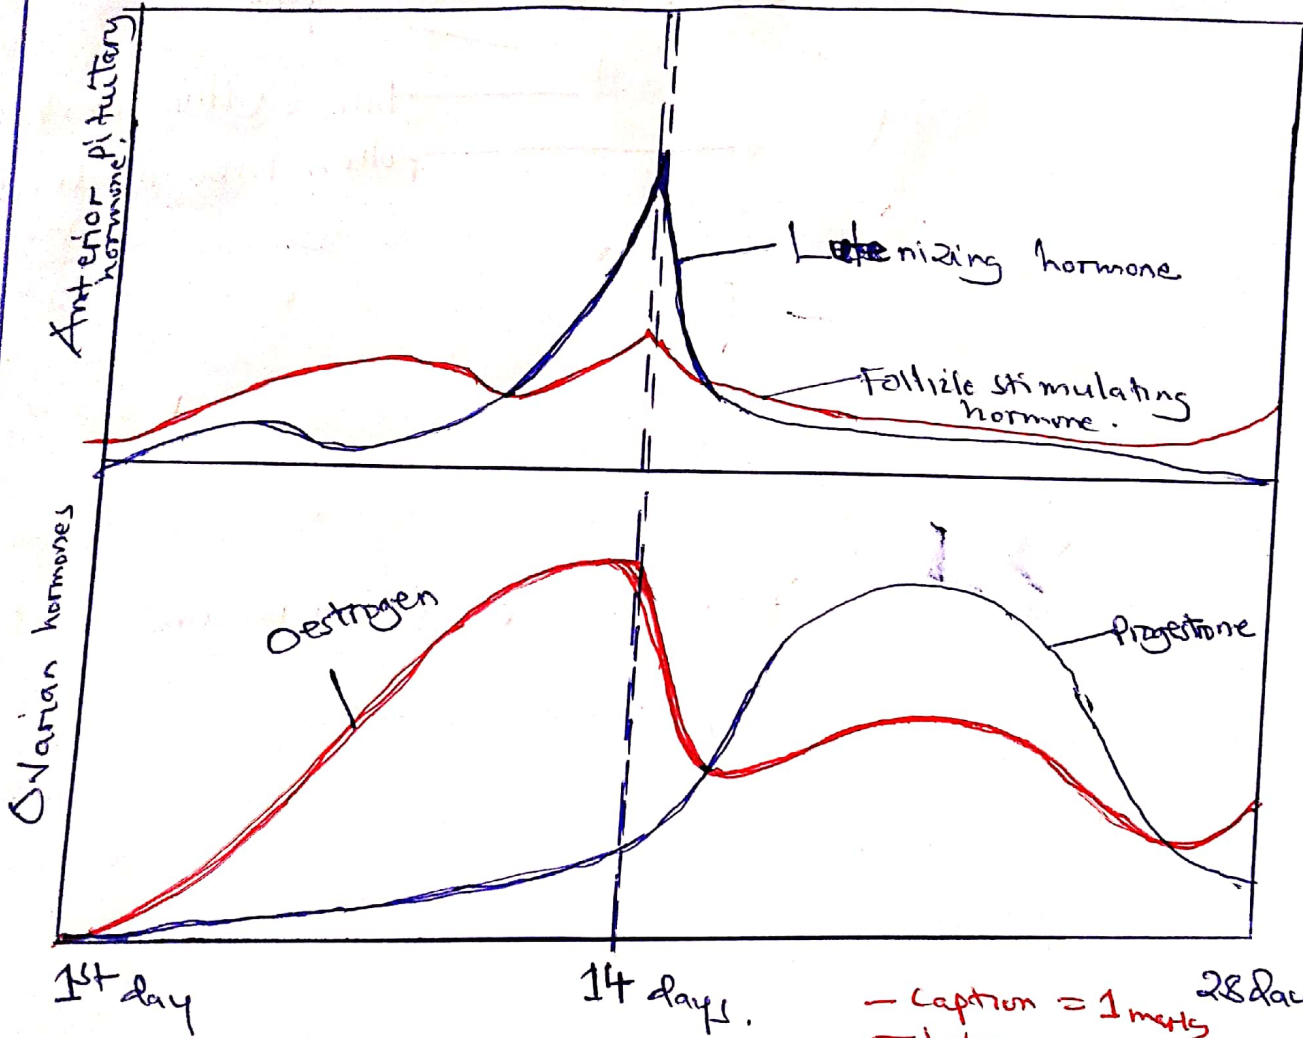 Anterior pituitary
hormone.
Lutenizing hormone
Follicle stimulating
hormone.
Ovarian hormones
Oestrogen
Progestrone
1st day
14 days.
28 da
- Caption = 1 marks